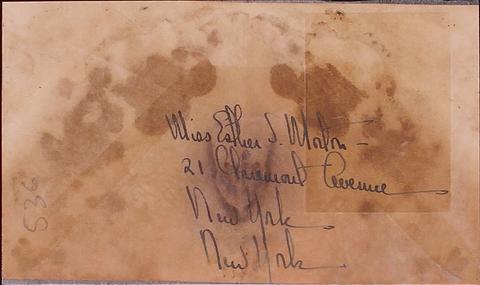 Miss Esther S. Morton -
21 Claremont Avenue
New York
New York.
536